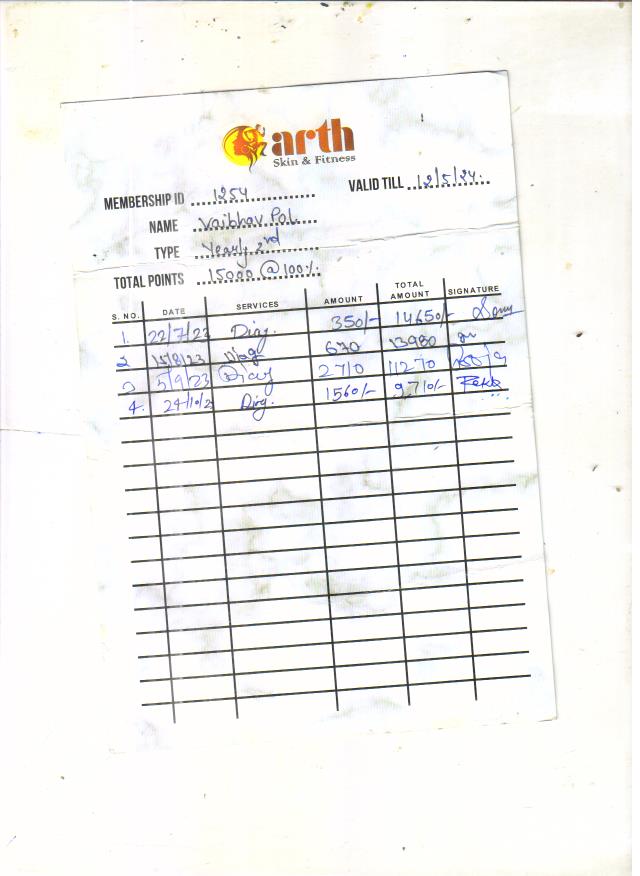 arth
Skin & Fitness
MEMBERSHIP ID 1254
VALID TILL 12/5/24.
NAME Vaibhav Pol.
TYPE Yearly 2nd
TOTAL POINTS 15000 @ 100%.
S. NO. DATE SERVICES AMOUNT TOTAL AMOUNT SIGNATURE
1. 22/7/23 350/- 14650/-
2 15/8/23 670 13980
3 5/9/23 2710 11270
4. 24/10/2 1560/- 9710/-